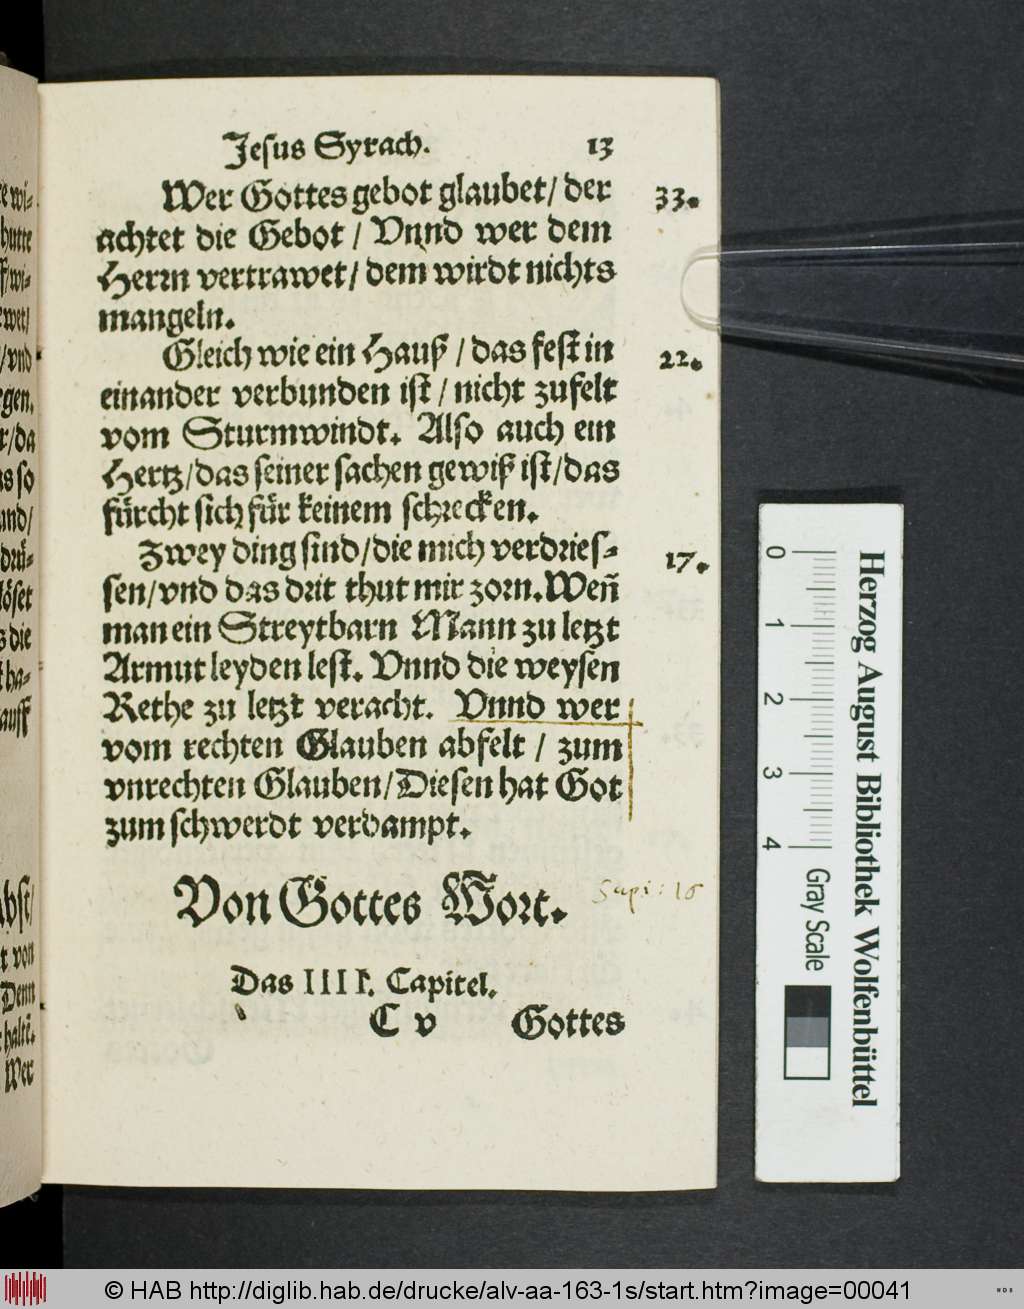 Jesus Syrach. 13
Wer Gottes gebot glaubet/ der 33.
achtet die Gebot / Vnnd wer dem
Herrn vertrawet/ dem wirdt nichts
mangeln.
Gleich wie ein Hauß / das fest in 22.
einander verbunden ist / nicht zufelt
vom Sturmwindt. Also auch ein
Hertz/das seiner sachen gewiß ist/das
fürcht sich für keinem schrecken.
Zwey ding sind/die mich verdries- 17.
sen/vnd das drit thut mir zorn. Weñ
man ein Streytbarn Mann zu letzt
Armut leyden lest. Vnnd die weysen
Rethe zu letzt veracht. Vnnd wer
vom rechten Glauben abfelt / zum
vnrechten Glauben/Diesen hat Got
zum schwerdt verdampt.
Von Gottes Wort. Sapi: 16
Das IIII. Capitel.
C v Gottes
wi-
hutte
wi-
wet/
/vnd
gen.
r/da
as so
und/
drü-
löset
s die
ha-
auff
abst/
t von
Denn
halte.
Wer
0 1 2 3 4
Gray Scale
Herzog August Bibliothek Wolfenbüttel
© HAB http://diglib.hab.de/drucke/alv-aa-163-1s/start.htm?image=00041